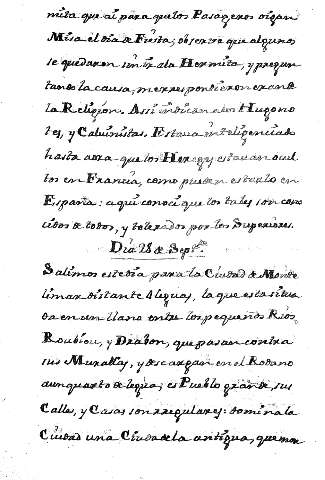 mita que ai para que los Pasageros oigan
Misa el dia de Fiesta; observè que algunos
se quedaron sin ir ala Hermita, y pregun
tando la causa, me respondieron eran de
la Religion. Assi indican alos Hugono
tes, y Calvinistas. Estava inteligenciado
hasta aora que los Hereges estavan ocul
tos en Francia, como pueden estarlo en
España: aqui conoci que los tales son cono
cidos de todos, y tolerados por los Superiores.
Dia 28 de Septre
Salimos este dia para la Ciudad de Monte
limar distante 4 leguas, la que esta situa
da en un llano entre los pequeños Rios
Roubiou, y Drabon, que pasan contra
sus Murallas, y descargan en el Rodano
a un quarto de legua; es Pueblo grande, sus
Calles, y Casas son rregulares: domina la
Ciudad una Ciudadela antigua, que